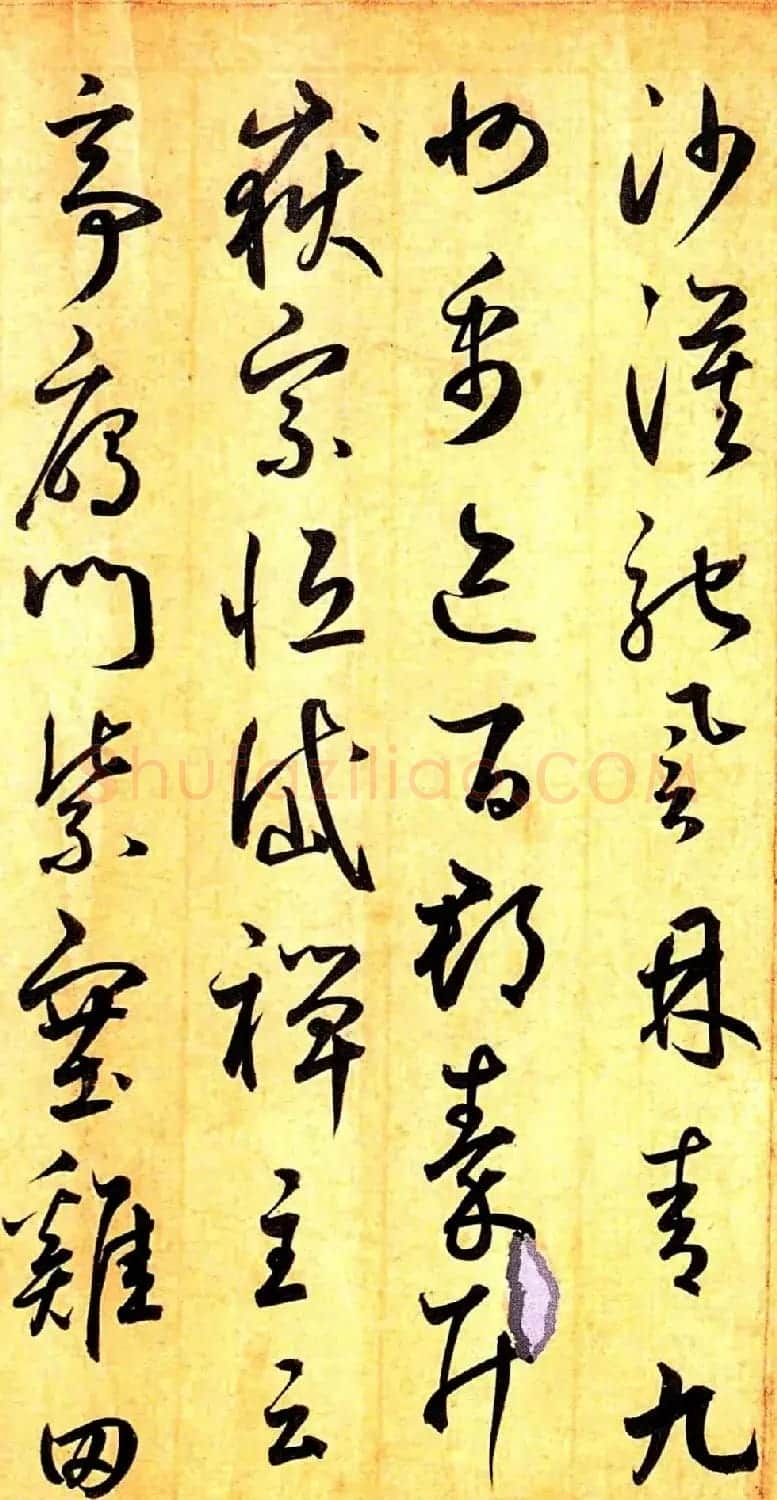 沙漠馳譽丹青九
州禹迹百郡秦并
嶽宗恒岱禪主云
亭鴈門紫塞雞田
shufaziliao.COM